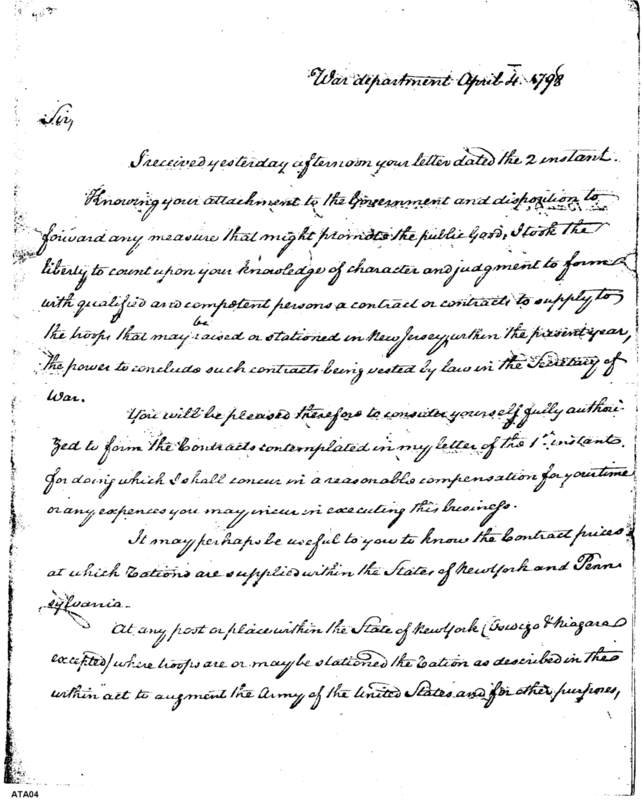 War department April 4. 1798
Sir,
I received yesterday afternoon your letter dated the 2 instant.
Knowing your attachment to the Government and disposition to
forward any measure that might promote the public Good, I took the
liberty to count upon your knowledge of character and judgment to form
with qualified and competent persons a contract or contracts to supply to
the troops that may be raised or stationed in New Jersey, within the present year,
the power to conclude such contracts being vested by law in the Secretary of
War.
You will be pleased therefore to consider yourself fully authori-
zed to form the Contracts contemplated in my letter of the 1st. instant.
for doing which I shall concur in a reasonable compensation for your time
or any expences you may incur in executing this business.
It may perhaps be useful to you to know the Contract prices
at which Rations are supplied within the States of New York and Penn
sylvania.
At any post or place within the State of New York (Oswego & Niagara
excepted) where troops are or may be stationed the Ration as described in the
within act to augment the Army of the United States and for other purposes,
ATA04